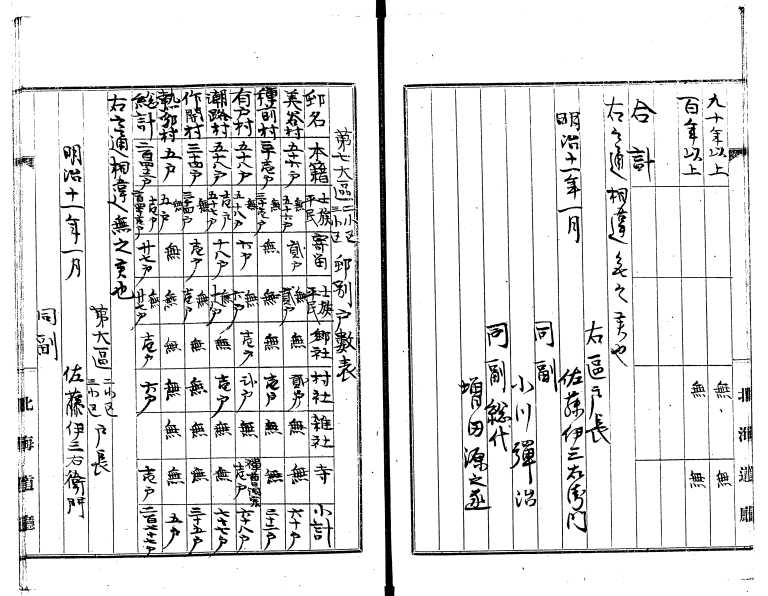 九十年以上 無 無
百年以上 無 無
合計
右之通相違無之者也
明治十一年一月
右區戸長
佐藤伊三右衛門
同副
小川彈治
同副総代
増田源之丞
北海道廳
第七大區 二小区 三小区 邨別戸數表
邨名 本籍 士族 平民 寄留 士族 平民 郷社 村社 雑社 寺 小計
美谷村 五十六戸 無 五十六戸 貳戸 無 貳戸 無 貳戸 無 無 六十戸
種前村 三十壱戸 無 三十壱戸 無 無 無 壱戸 無 無 三十二戸
有戸村 五十八戸 無 五十八戸 六戸 無 六戸 壱戸 無 壱戸 六十八戸
潮路村 五十八戸 壱戸 五十七戸 十八戸 無 十八戸 無 壱戸 無 無 七十七戸
作開村 三十四戸 無 三十四戸 壱戸 無 壱戸 無 無 無 無 三十五戸
熱郛村 五戸 無 五戸 無 無 無 無 無 無 五戸
総計 二百四十二戸 壱戸 廿七戸 無 廿七戸 壱戸 六戸 無 壱戸 二百七十七戸
右之通相違無之者也
明治十一年一月
第七大區 二小区 三小区 戸長
佐藤伊三右衛門
同副
北海道廳